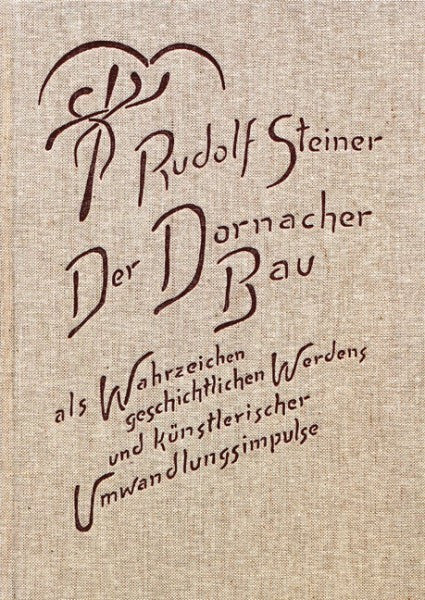 Rudolf Steiner
Der Dornacher
Bau
als Wahrzeichen
geschichtlichen Werdens
und künstlerischer
Umwandlungsimpulse